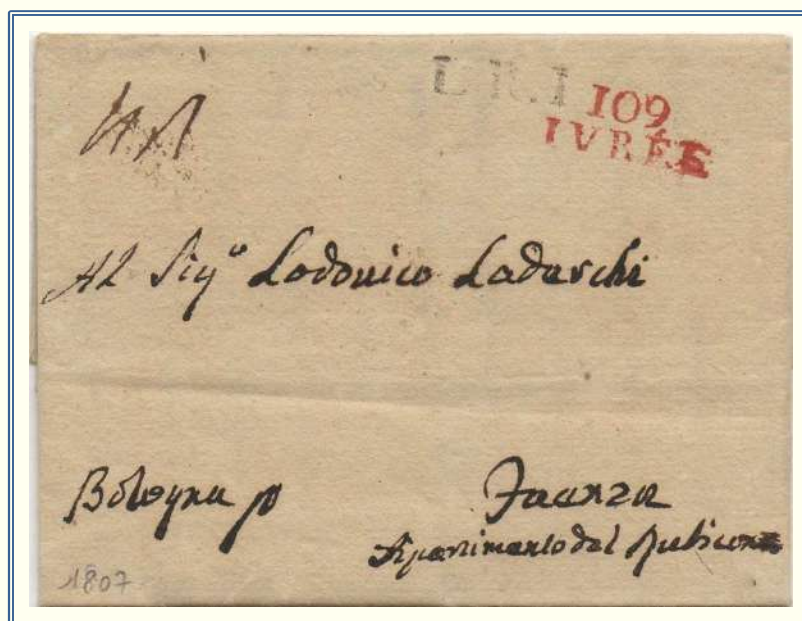 L.R.I
109
IVRÉE
Al Sigr Lodovico Laderchi
Bologna p
Faenza
Dipartimento del Rubicone
1807